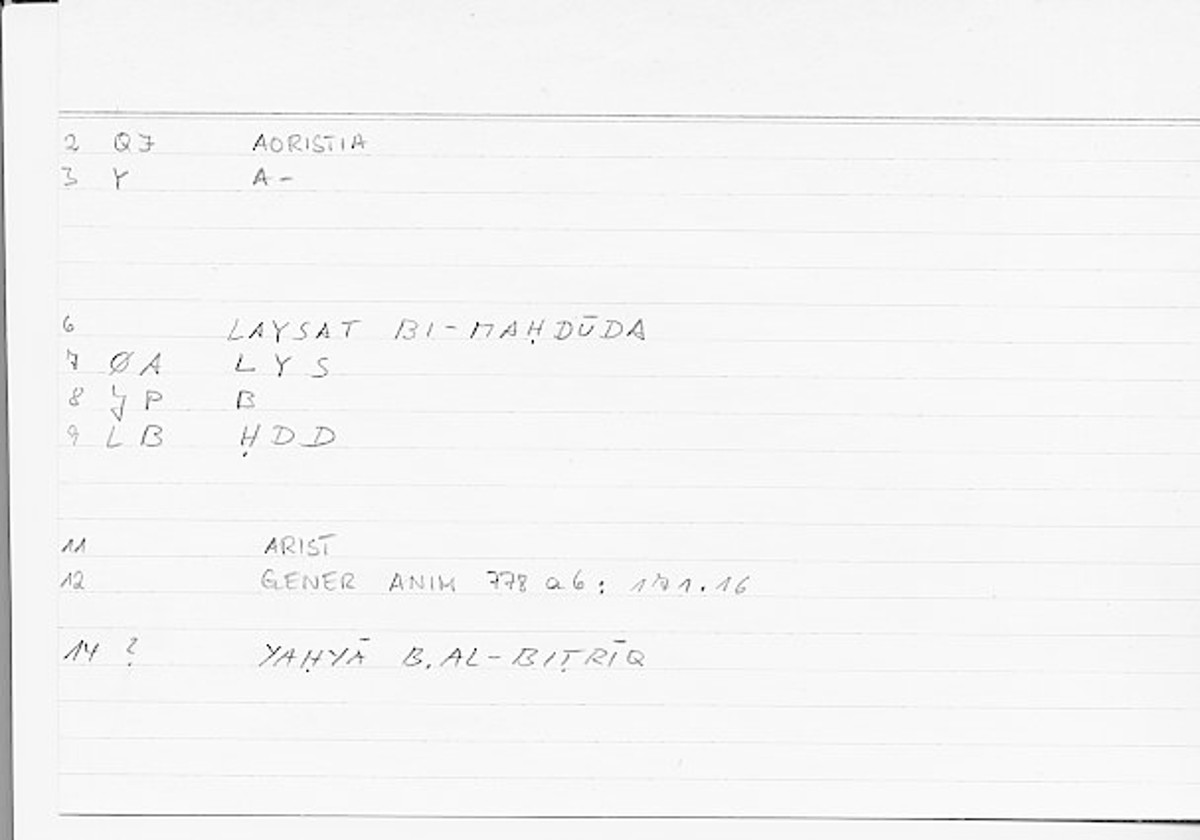 2 Q7 AORISTIA
3 Y A-
6 LAYSAT BI-MAḤDŪDA
7 ØA LYS
8 P B
9 LB ḤDD
11 ARIST
12 GENER ANIM 778 a 6: 171.16
14 ? YAḤYĀ B. AL-BIṬRĪQ